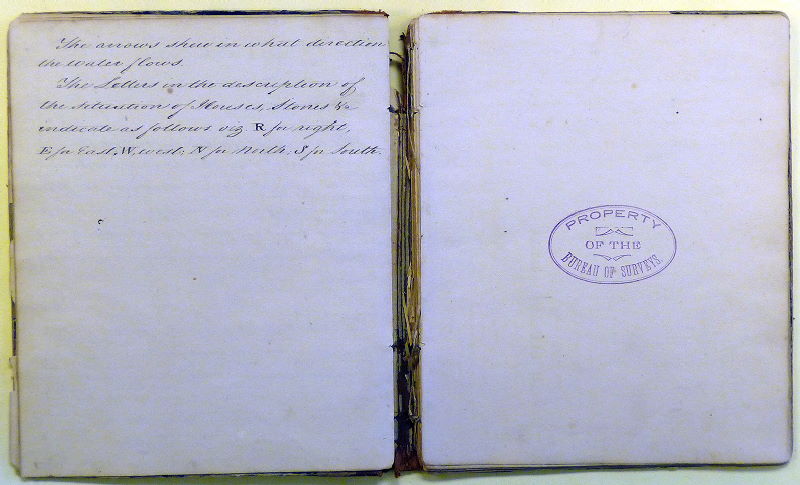 The arrows shew in what direction
the water flows
The Letters in the description of
the situation of Houses, Stones &c
indicate as follows viz R for right,
E for East, W, west, N for North, S for South.
PROPERTY
OF THE
BUREAU OF SURVEYS.